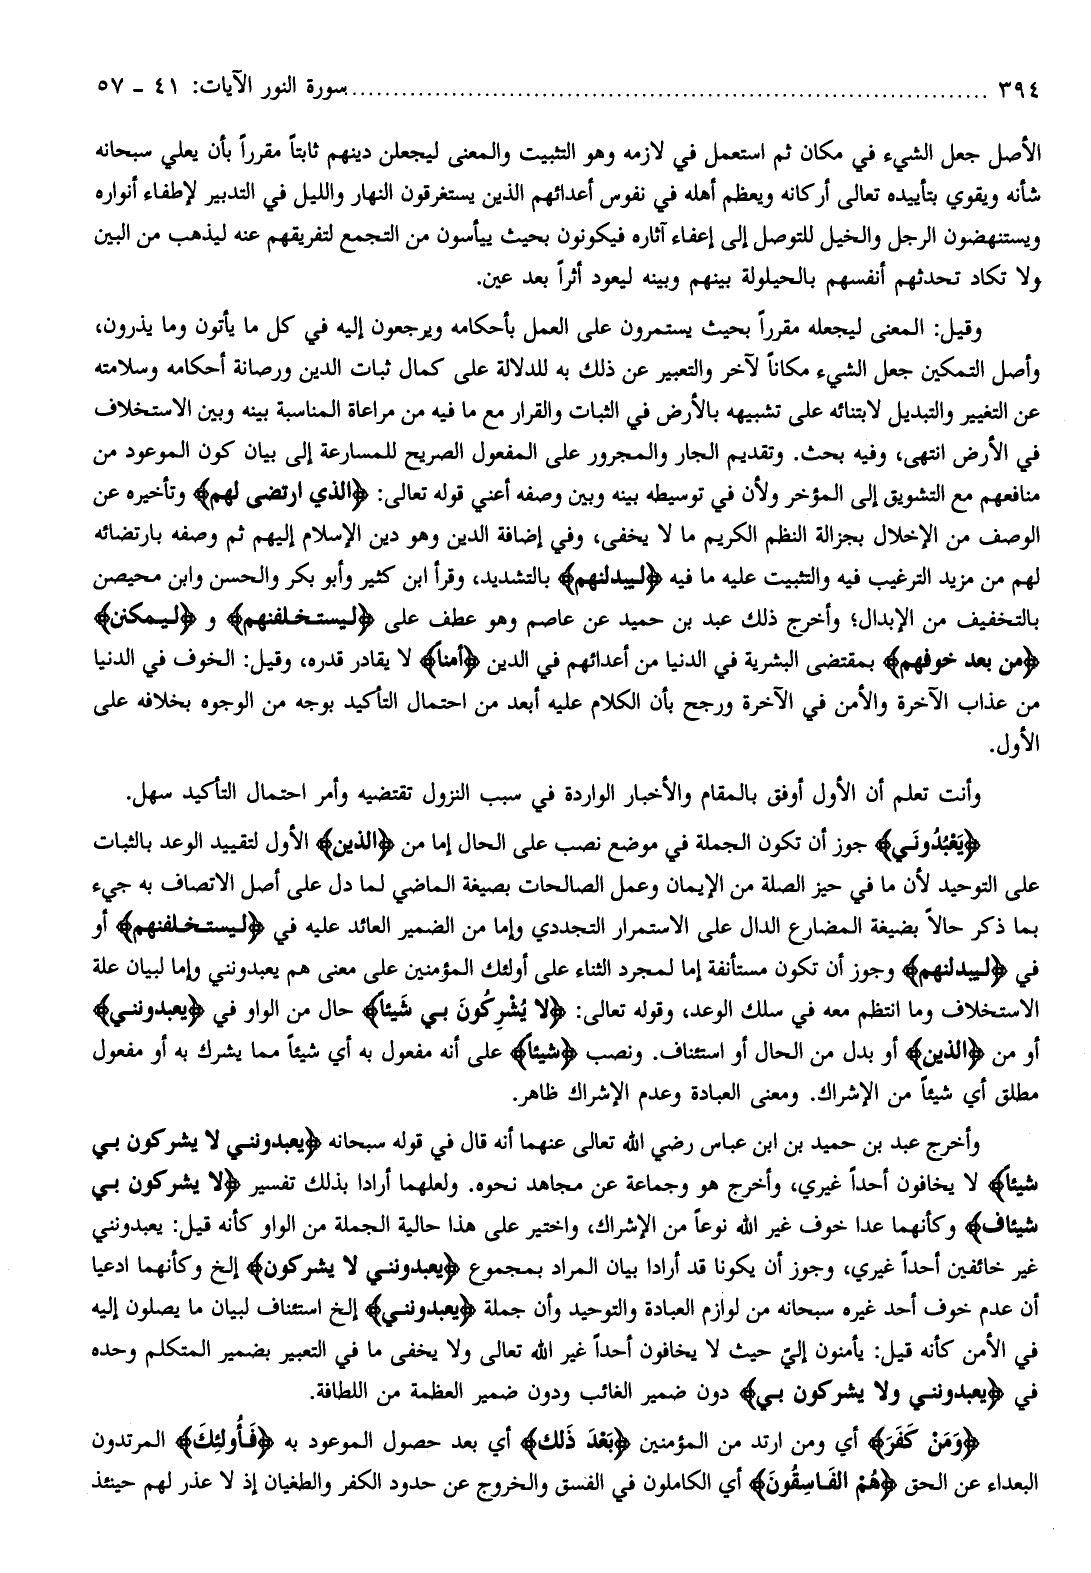 ٣٩٤ ........................................................ سورة النور الآيات: ٤١ - ٥٧
الأصل جعل الشيء في مكان ثم استعمل في لازمه وهو التثبيت والمعنى ليجعلن دينهم ثابتاً مقرراً بأن يعلي سبحانه
شأنه ويقوي بتأييده تعالى أركانه ويعظم أهله في نفوس أعدائهم الذين يستغرقون النهار والليل في التدبير لإطفاء أنواره
ويستنهضون الرجل والخيل للتوصل إلى إعفاء آثاره فيكونون بحيث ييأسون من التجمع لتفريقهم عنه ليذهب من البين
ولا تكاد تحدثهم أنفسهم بالحيلولة بينهم وبينه ليعود أثراً بعد عين.
وقيل: المعنى ليجعله مقرراً بحيث يستمرون على العمل بأحكامه ويرجعون إليه في كل ما يأتون وما يذرون،
وأصل التمكين جعل الشيء مكاناً لآخر والتعبير عن ذلك به للدلالة على كمال ثبات الدين ورصانة أحكامه وسلامته
عن التغيير والتبديل لابتنائه على تشبيهه بالأرض في الثبات والقرار مع ما فيه من مراعاة المناسبة بينه وبين الاستخلاف
في الأرض انتهى، وفيه بحث. وتقديم الجار والمجرور على المفعول الصريح للمسارعة إلى بيان كون الموعود من
منافعهم مع التشويق إلى المؤخر ولأن في توسيطه بينه وبين وصفه أعني قوله تعالى: ﴿الذي ارتضى لهم﴾ وتأخيره عن
الوصف من الإخلال بجزالة النظم الكريم ما لا يخفى، وفي إضافة الدين وهو دين الإسلام إليهم ثم وصفه بارتضائه
لهم من مزيد الترغيب فيه والتثبيت عليه ما فيه ﴿ليبدلنهم﴾ بالتشديد، وقرأ ابن كثير وأبو بكر والحسن وابن محيصن
بالتخفيف من الإبدال؛ وأخرج ذلك عبد بن حميد عن عاصم وهو عطف على ﴿ليستخلفنهم﴾ و ﴿ليمكنن﴾
﴿من بعد خوفهم﴾ بمقتضى البشرية في الدنيا من أعدائهم في الدين ﴿أمناً﴾ لا يقادر قدره، وقيل: الخوف في الدنيا
من عذاب الآخرة والأمن في الآخرة ورجح بأن الكلام عليه أبعد من احتمال التأكيد بوجه من الوجوه بخلافه على
الأول.
وأنت تعلم أن الأول أوفق بالمقام والأخبار الواردة في سبب النزول تقتضيه وأمر احتمال التأكيد سهل.
﴿يَعْبُدُونَي﴾ جوز أن تكون الجملة في موضع نصب على الحال إما من ﴿الذين﴾ الأول لتقييد الوعد بالثبات
على التوحيد لأن ما في حيز الصلة من الإيمان وعمل الصالحات بصيغة الماضي لما دل على أصل الاتصاف به جيء
بما ذكر حالاً بضيغة المضارع الدال على الاستمرار التجددي وإما من الضمير العائد عليه في ﴿ليستخلفنهم﴾ أو
في ﴿ليبدلنهم﴾ وجوز أن تكون مستأنفة إما لمجرد الثناء على أولئك المؤمنين على معنى هم يعبدونني وإما لبيان علة
الاستخلاف وما انتظم معه في سلك الوعد، وقوله تعالى: ﴿لا يُشْرِكُونَ بي شَيئاً﴾ حال من الواو في ﴿يعبدونني﴾
أو من ﴿الذين﴾ أو بدل من الحال أو استئناف. ونصب ﴿شيئاً﴾ على أنه مفعول به أي شيئاً مما يشرك به أو مفعول
مطلق أي شيئاً من الإشراك. ومعنى العبادة وعدم الإشراك ظاهر.
وأخرج عبد بن حميد بن ابن عباس رضي الله تعالى عنهما أنه قال في قوله سبحانه ﴿يعبدونني لا يشركون بي
شيئاً﴾ لا يخافون أحداً غيري، وأخرج هو وجماعة عن مجاهد نحوه. ولعلهما أرادا بذلك تفسير ﴿لا يشركون بي
شيئاف﴾ وكأنهما عدا خوف غير الله نوعاً من الإشراك، واختير على هذا حالية الجملة من الواو كأنه قيل: يعبدونني
غير خائفين أحداً غيري، وجوز أن يكونا قد أرادا بيان المراد بمجموع ﴿يعبدونني لا يشركون﴾ إلخ وكأنهما ادعيا
أن عدم خوف أحد غيره سبحانه من لوازم العبادة والتوحيد وأن جملة ﴿يعبدونني﴾ إلخ استئناف لبيان ما يصلون إليه
في الأمن كأنه قيل: يأمنون إليّ حيث لا يخافون أحداً غير الله تعالى ولا يخفى ما في التعبير بضمير المتكلم وحده
في ﴿يعبدونني ولا يشركون بي﴾ دون ضمير الغائب ودون ضمير العظمة من اللطافة.
﴿وَمَنْ كَفَرَ﴾ أي ومن ارتد من المؤمنين ﴿بَعْدَ ذَلك﴾ أي بعد حصول الموعود به ﴿فَأُولئِكَ﴾ المرتدون
البعداء عن الحق ﴿هُمْ الفَاسِقُونَ﴾ أي الكاملون في الفسق والخروج عن حدود الكفر والطغيان إذ لا عذر لهم حينئذ